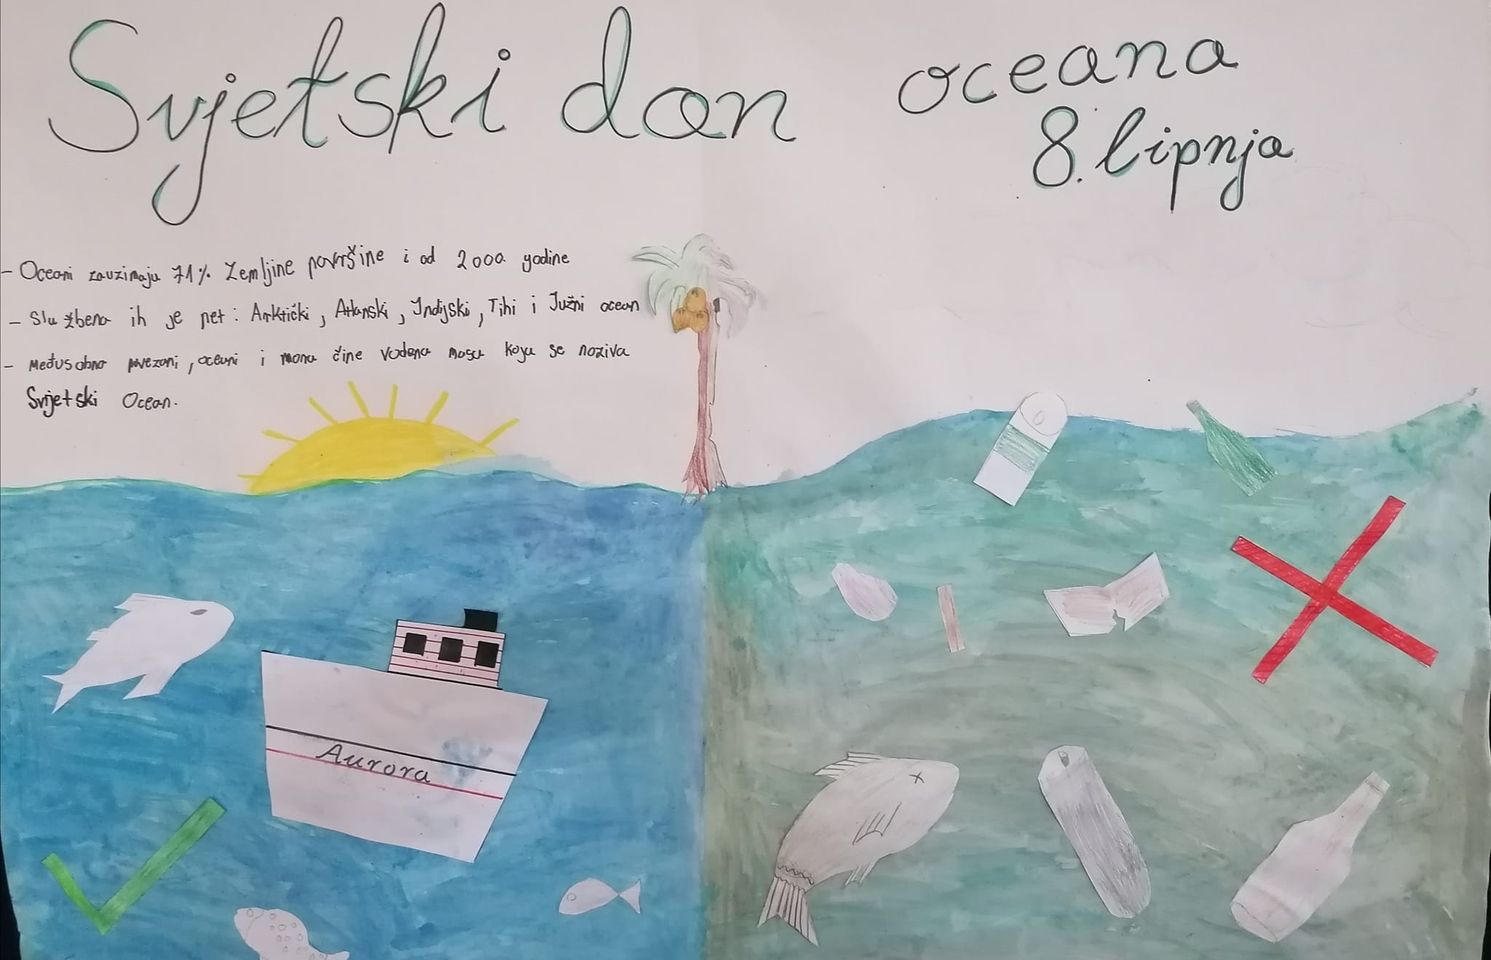 Svjetski dan oceana
8. lipnja
- Oceani zauzimaju 71% Zemljine površine i od 2000. godine
- službeno ih je pet: Arktički, Atlanski, Indijski, Tihi i Južni ocean
- Međusobno povezani, oceani i mora čine vodenu masu koja se naziva
Svjetski Ocean.
Aurora